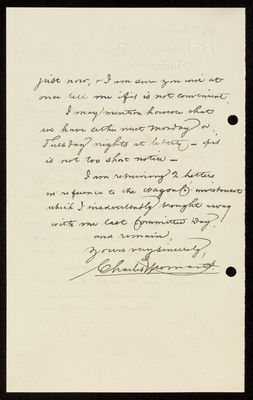 just now, & I am sure you will at
once tell me if it is not convenient.
I may mention however that
we have either next Monday or
Tuesday nights at liberty – if it
is not too short notice –
I am returning 2 letters
in reference to the Wagon Co investment
which I inadvertently brought away
with me last Committee Day.
and remain,
Yours very sincerely,
Charles